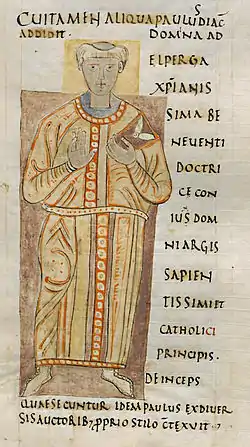 CUI TAMEN ALIQUA PAULUS DIAC
ADDIDIT. DOMNA AD
ELPERGA
XP̅IANIS
SIMA BE
NEVENTI
DOCTRI
CE CON
IUS̅ DOM
NI ARGIS
SAPIEN
TISSIMI ET
CATHOLICI
PRINCIPIS.
DEINCEPS
QUAESECUNTUR IDEM PAULUS EX DIVER
SIS AUCTORIB; PPRIO STILO C̅TEXUIT